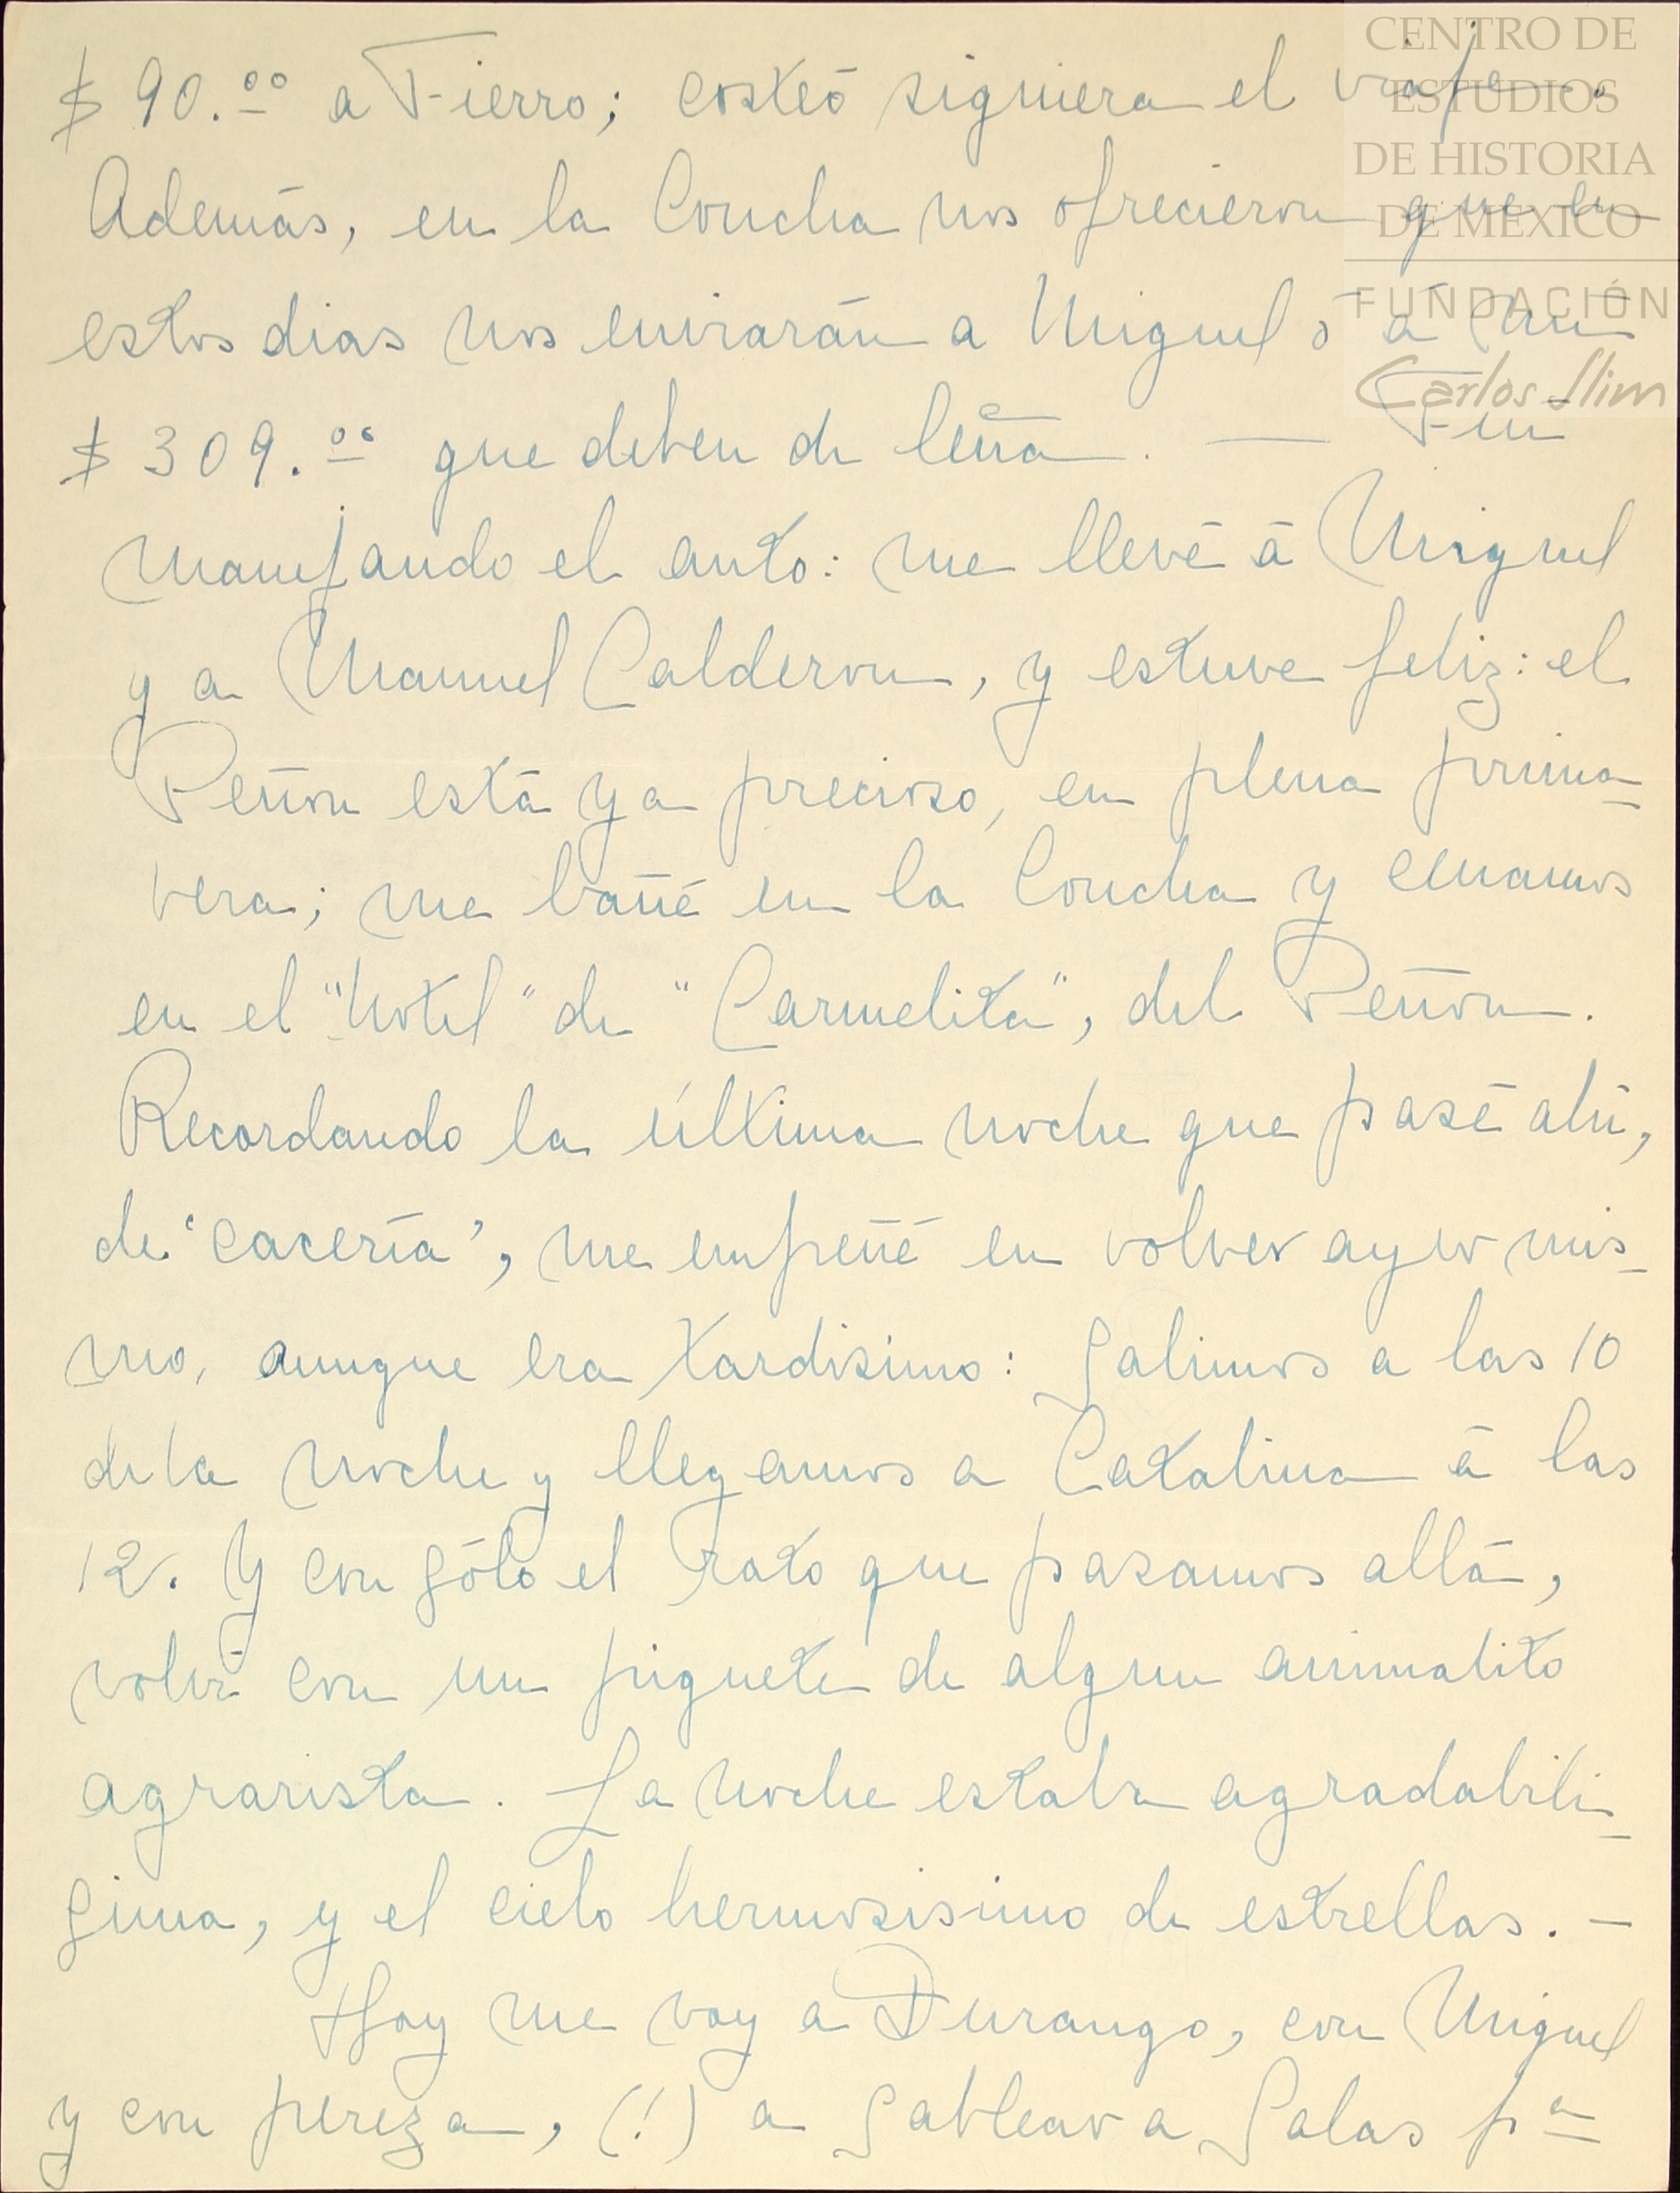 CENTRO DE
ESTUDIOS
DE HISTORIA
DE MÉXICO
FUNDACIÓN
Carlos Slim
$ 90.ºº a Fierro; costeó siquiera el viaje.
Además, en la Concha nos ofrecieron que en
estos dias nos enviarán a Miguel ó á mi
$ 309.ºº que deben de leña. — Fui
manejando el auto: me llevé á Miguel
y a Manuel Calderon, y estuve feliz: el
Peñon está ya precioso, en plena prima=
vera; me bañé en la Concha y cenamos
en el "hotel" de "Carmelita", del Peñon.
Recordando la última noche que pasé ahí,
de 'cacería', me empeñé en volver ayer mis=
mo, aunque era tardisimo: salimos a las 10
de la noche y llegamos a Catalina á las
12. Y con sólo el rato que pasamos allá,
volví con un piquete de algun animalito
agrarista. La noche estaba agradabilí=
sima, y el cielo hermosisimo de estrellas. —
Hoy me voy a Durango, con Miguel
y con pereza, (!) a sablear a Salas pª